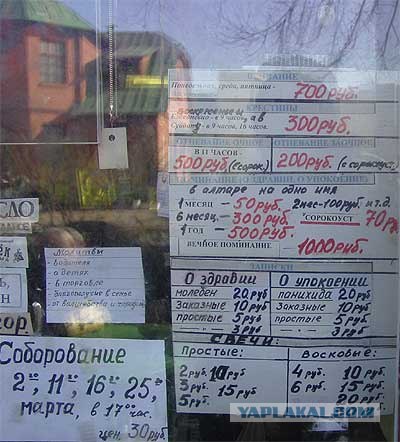 ВЕНЧАНИЕ
Понедельник, среда, пятница - 700 руб.
КРЕСТИНЫ
воскресенье
в 9 часов,
Суббота - в 9 часов, 16 часов. 300 руб.
ОТПЕВАНИЕ ОЧНОЕ ОТПЕВАНИЕ ЗАОЧНОЕ
В 11 ЧАСОВ -
500 руб. (с сорок.) 200 руб. (с сорокоуст.)
ПОМИНАНИЕ (О ЗДРАВИИ, О УПОКОЕНИИ)
в алтаре на одно имя
1 месяц - 50 руб. 2 мес - 100 руб. и т.д.
6 месяц. - 300 руб. "СОРОКОУСТ" 70 р.
1 год - 500 руб.
ВЕЧНОЕ ПОМИНАНИЕ - 1000 руб.
ЗАПИСКИ
О здравии О упокоении
молебен 20 руб панихида 20 руб
Заказные 10 руб Заказные 10 руб
простые 5 руб простые 5 руб
— 3 руб — 3 руб
СВЕЧИ:
Простые: Восковые:
2 руб 10 руб 4 руб. 10 руб.
3 руб. 15 руб 6 руб. 15 руб.
5 руб 20 руб
СЛО
Молитвы
- водителя
- о детях
- в торговле
- благополучие в семье
Соборование
2ºº, 11ºº, 16ºº, 25ºº,
марта, в 17ºº час.
цен. 30 руб.
YAPLAKAL.COM